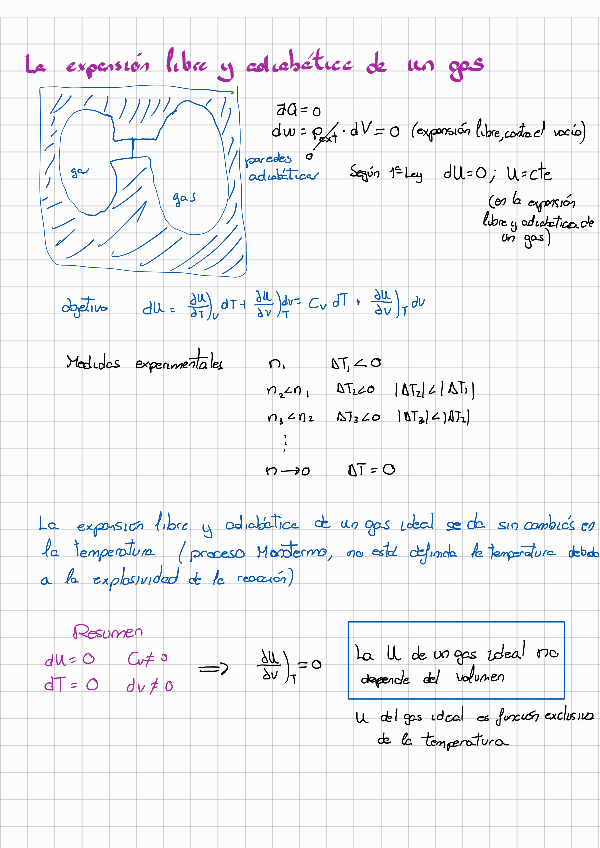 La expansión libre y adiabática de un gas
đQ = 0
dw = Pext · dV = 0 (expansión libre, contra el vacío)
0
paredes
adiabáticas
ga
gas
Según 1ª Ley dU = 0 ; U = cte
(en la expansión
libre y adiabática de
un gas)
objetivo dU = ∂U/∂T)v dT + ∂U/∂v)T dv = Cv dT + ∂U/∂v)T dv
Medidas experimentales n₁ ΔT₁ < 0
n₂ < n₁ ΔT₂ < 0 |ΔT₂| < |ΔT₁|
n₃ < n₂ ΔT₃ < 0 |ΔT₃| < |ΔT₂|
⋮
n → 0 ΔT = 0
La expansión libre y adiabática de un gas ideal se da sin cambios en
la temperatura (proceso Monotermo, no está definida la temperatura debido
a la explosividad de la reacción)
Resumen
dU = 0 Cv ≠ 0
dT = 0 dv ≠ 0
⟹ ∂U/∂v)T = 0
La U de un gas ideal no
depende del volumen
U del gas ideal es función exclusiva
de la temperatura